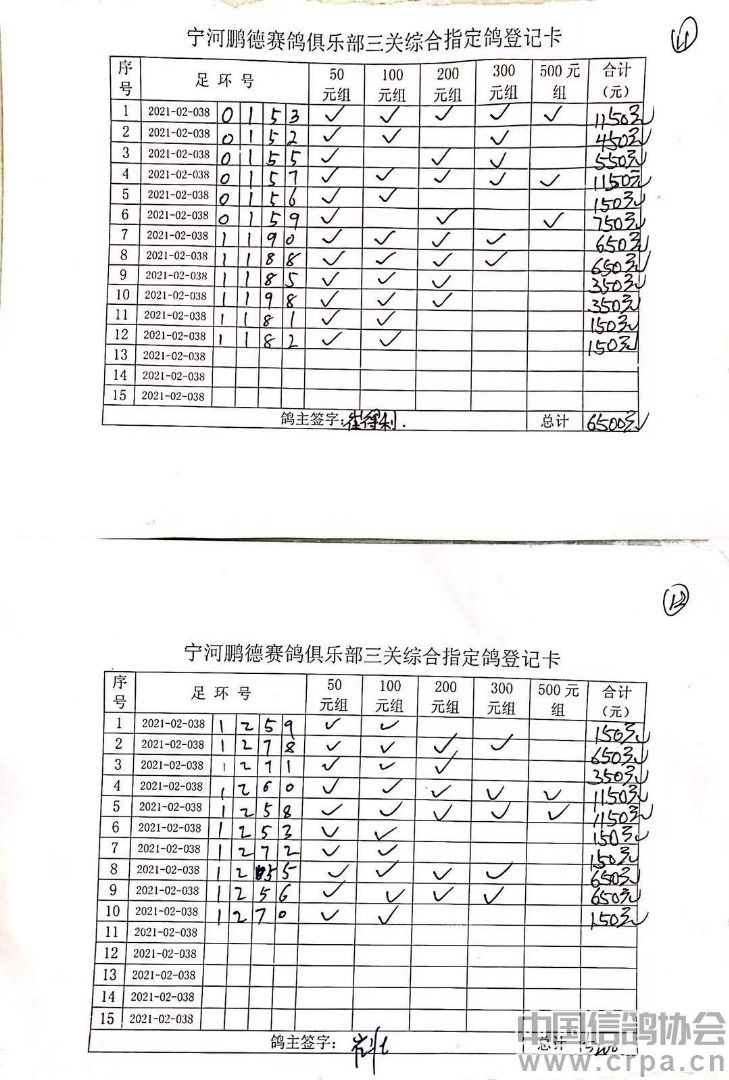 11
宁河鹏德赛鸽俱乐部三关综合指定鸽登记卡
序号 足环号 50元组 100元组 200元组 300元组 500元组 合计(元)
1 2021-02-038 0153 ✓ ✓ ✓ ✓ ✓ 1150元
2 2021-02-038 0152 ✓ ✓ ✓ 450元
3 2021-02-038 0155 ✓ ✓ ✓ 550元
4 2021-02-038 0157 ✓ ✓ ✓ ✓ ✓ 1150元
5 2021-02-038 0156 ✓ ✓ 150元
6 2021-02-038 0159 ✓ ✓ ✓ 750元
7 2021-02-038 1190 ✓ ✓ ✓ ✓ 650元
8 2021-02-038 1188 ✓ ✓ ✓ ✓ 650元
9 2021-02-038 1185 ✓ ✓ ✓ 350元
10 2021-02-038 1198 ✓ ✓ ✓ 350元
11 2021-02-038 1181 ✓ ✓ 150元
12 2021-02-038 1182 ✓ ✓ 150元
13 2021-02-038
14 2021-02-038
15 2021-02-038
鸽主签字: 总计 6500元
12
宁河鹏德赛鸽俱乐部三关综合指定鸽登记卡
序号 足环号 50元组 100元组 200元组 300元组 500元组 合计(元)
1 2021-02-038 1259 ✓ ✓ 150元
2 2021-02-038 1278 ✓ ✓ ✓ ✓ 650元
3 2021-02-038 1271 ✓ ✓ ✓ 350元
4 2021-02-038 1260 ✓ ✓ ✓ ✓ ✓ 1150元
5 2021-02-038 1258 ✓ ✓ ✓ ✓ ✓ 1150元
6 2021-02-038 1253 ✓ ✓ 150元
7 2021-02-038 1272 ✓ ✓ 150元
8 2021-02-038 1255 ✓ ✓ ✓ ✓ 650元
9 2021-02-038 1256 ✓ ✓ ✓ ✓ 650元
10 2021-02-038 1270 ✓ ✓ 150元
11 2021-02-038
12 2021-02-038
13 2021-02-038
14 2021-02-038
15 2021-02-038
鸽主签字: 总计
中国信鸽协会
www.crpa.cn